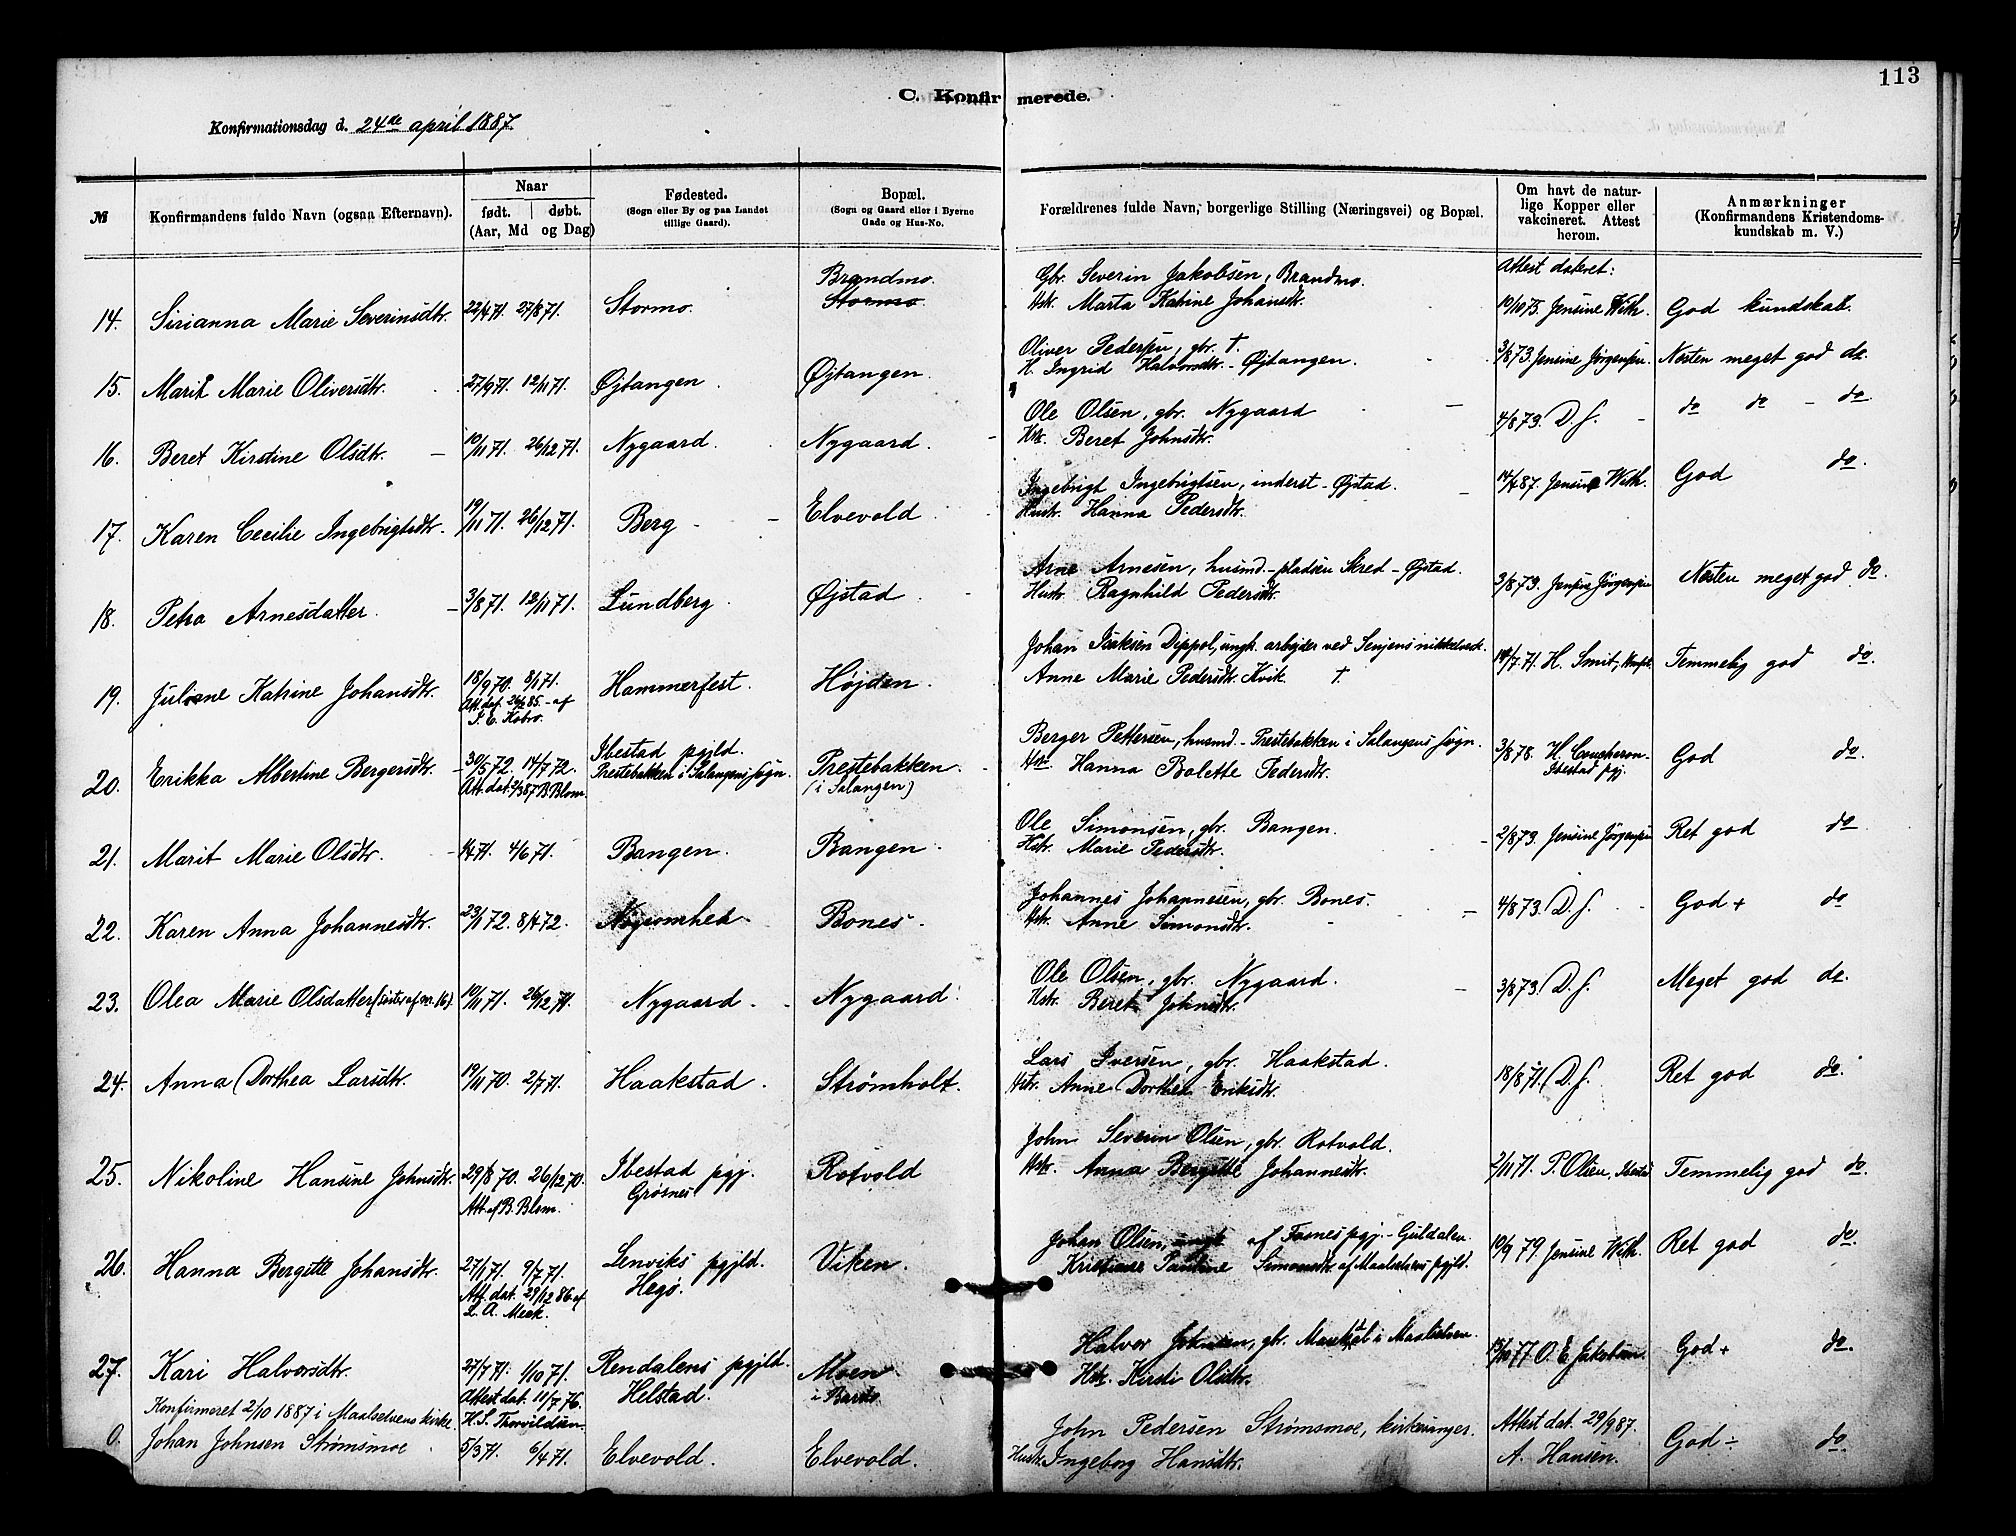 113
C. Konfirmerede.
Konfirmationsdag d. 24de april 1887.
№
Konfirmandens fulde Navn (ogsaa Efternavn).
Naar
født. døbt.
(Aar, Md og Dag)
Fødested.
(Sogn eller By og paa Landet
tillige Gaard).
Bopæl.
(Sogn og Gaard eller i Byerne
Gade og Hus-No.
Forældrenes fulde Navn, borgerlige Stilling (Næringsvei) og Bopæl.
Om havt de natur-
lige Kopper eller
vakcineret. Attest
herom.
Anmærkninger
(Konfirmandens Kristendoms-
kundskab m. V.)
Attest dateret:
14. Sirianna Marie Severinsdtr. 22/4 71. 27/8 71. Stormo. Brandmo.
Stormo
Gbr. Severin Jakobsen, Brandmo.
Hst. Marta Katrine Johansdtr.
19/10 75. Jensine With. God kundskab.
15. Marit Marie Oliversdtr. 27/9 71. 12/11 71. Øjtangen. Øjtangen.
Oliver Pedersen, gbr. †.
H. Ingrid Halvorsdtr. - Øjtangen.
3/8 73. Jensine Jörgensen. Nesten meget god do.
16. Beret Kirstine Olsdtr. 10/11 71. 26/12 71. Nygaard. Nygaard.
Ole Olsen, gbr. Nygaard
Hst. Beret Johnsdtr.
4/8 73. D. f. do do - do
17. Karen Cecilie Ingebrigtsdtr. 19/11 71. 26/12 71. Berg Elvevold
Ingebrigt Ingebrigtsen, inderst - Øjstad.
Hustr. Hanna Pedersdtr.
14/4 87. Jensine With. God do.
18. Petra Arnesdatter. 3/8 71. 12/11 71. Lundberg. Øjstad.
Arne Arnesen, husmd. - pladsen Skred - Øjstad.
Hustr. Ragnhild Pedersdtr.
3/8 73. Jensine Jörgensen Nesten meget god do.
19. Juliane Katrine Johansdtr. 18/9 70. 8/1 71. Hammerfest. Højden.
Att. dat. 85. - af
Kobro.
Johan Isaksen Dippol, ungk. arbejder ved Senjens nikkelverk.
Anne Marie Pedersdtr. Kvik. †
14/7 71. H. Smit, Temmelig god do.
20. Erikka Albertine Bergersdtr. 30/5 72. 14/7 72. Ibestad pgjld.
Prestebakken i Salangens sogn. Prestebakken
(i Salangen)
Att. dat. 87 B. Blom.
Berger Pettersen, husmd. - Prestebakken i Salangens sogn.
Hst. Hanna Bolette Pedersdtr.
3/8 78. H. Coucheron
Ibestad pgj. God do.
21. Marit Marie Olsdtr. 71. 4/6 71. Bangen. Bangen.
Ole Simonsen, gbr. Bangen.
Hstr. Marie Pedersdtr.
2/8 73. Jensine Jörgensen Ret god do
22. Karen Anna Johannesdtr. 23/1 72. 8/4 72. Nysomhed Bones.
Johannes Johannesen, gbr. Bones.
Hstr. Anne Simonsdtr.
4/8 73. D. f. God + do
23. Olea Marie Olsdatter (søster af no. 16). 10/11 71. 26/12 71. Nygaard. Nygaard.
Ole Olsen, gbr. Nygaard.
Hstr. Beret Johnsdtr.
3/8 73. D. f. Meget god do.
24. Anna Dorthea Larsdtr. 19/11 70. 2/7 71. Haakstad. Strømholt.
Lars Iversen, gbr. Haakstad.
Hstr. Anne Dorthea Eriksdtr.
18/8 71. D. f. Ret god do.
25. Nikoline Hansine Johnsdtr. 29/8 70. 26/12 70. Ibestad pgj.
Grøsnes Rotvold
Att. af B. Blom.
John Severin Olsen, gbr. Rotvold.
Hstr. Anna Bergitte Johannesdtr.
2/11 71. P. Olsen, Ibestad Temmelig god do.
26. Hanna Bergitte Johansdtr. 27/1 71. 9/7 71. Lenviks pgjld.
Hegø. Viken.
Att. dat. 29/12 86 af
L. A. Meek.
Johan Olsen, ungk. af Fosnes pgj. - Guldalen.
Pauline Simonsdtr. af Maalselvens pgjld.
10/9 79. Jensine With. Ret god do.
27. Kari Halvorsdtr. 27/7 71. 1/10 71. Rendalens pgjld.
Helstad. Moen
i Bardo
Attest dat. 11/7 76.
H. S. Thorvildsen
Halvor Johnsen, gbr. i Maalselven.
Hst. Kirsti Olsdtr.
15/10 77 O. E. Jakobsen. God + do.
Konfirmeret 2/10 1887 i Maalselvens kirke.
0. Johan Johnsen Strømsmoe 5/3 71. 6/4 71. Elvevold Elvevold.
John Pedersen Strømsmoe, kirkesanger.
Hustr. Ingeborg Hansdtr.
Attest dat. 29/9 87.
A. Hansen. God ÷ do